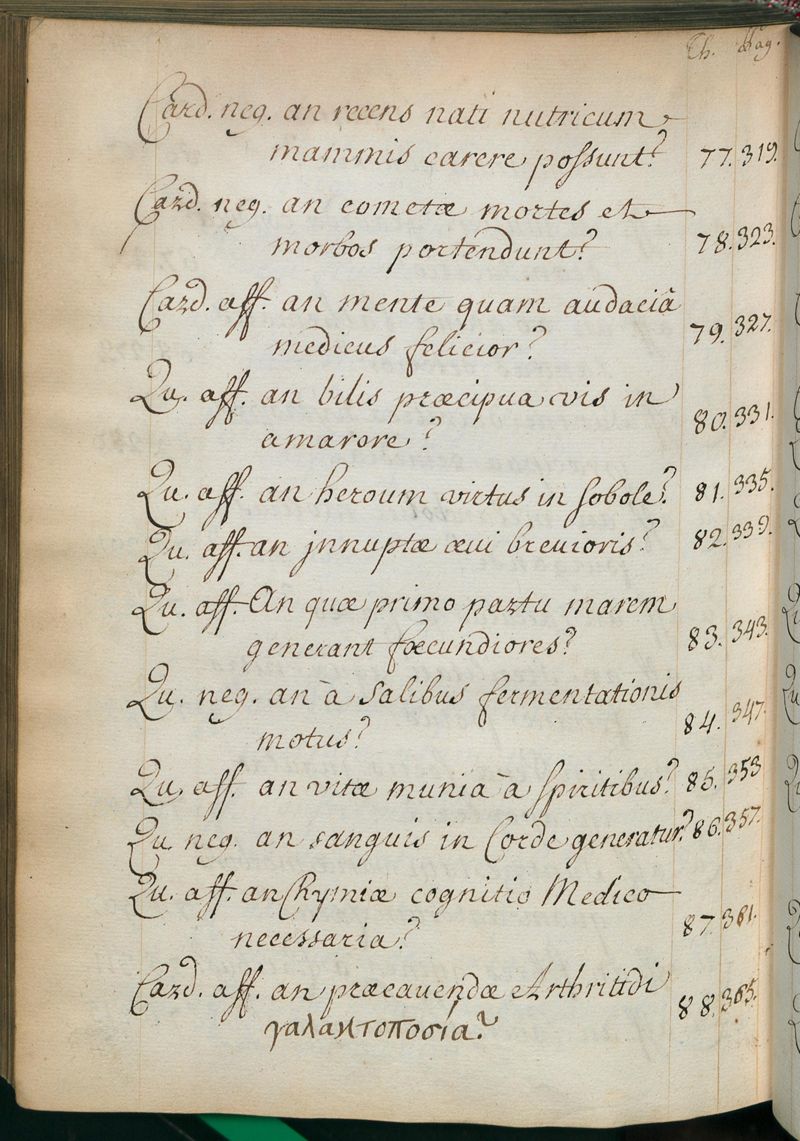 Th. Pag.
Card. neg. an recens nati nutricum
mammis carere possunt? 77. 319.
Card. neg. an cometæ mortes et
morbos portendunt? 78. 323.
Card. aff. an mente quam audaciâ
medicus felicior? 79. 327.
Qu. aff. an bilis præcipua vis in
amarore? 80. 331.
Qu. aff. an heroum virtus in sobole? 81. 335.
Qu. aff. an jnnuptæ ævi brevioris? 82. 339.
Qu. aff. An quæ primo partu marem
generant fœcundiores? 83. 343.
Qu. neg. an à salibus fermentationis
motus? 84. 347.
Qu. aff. an vitæ munia à spiritibus? 85. 353
Qu neg. an sanguis in Corde generatur? 86. 357.
Qu. aff. an Chymiæ cognitio Medico
necessaria? 87. 361.
Card. aff. an præcavendæ Arthritidi
γαλακτοποσία? 88. 365.